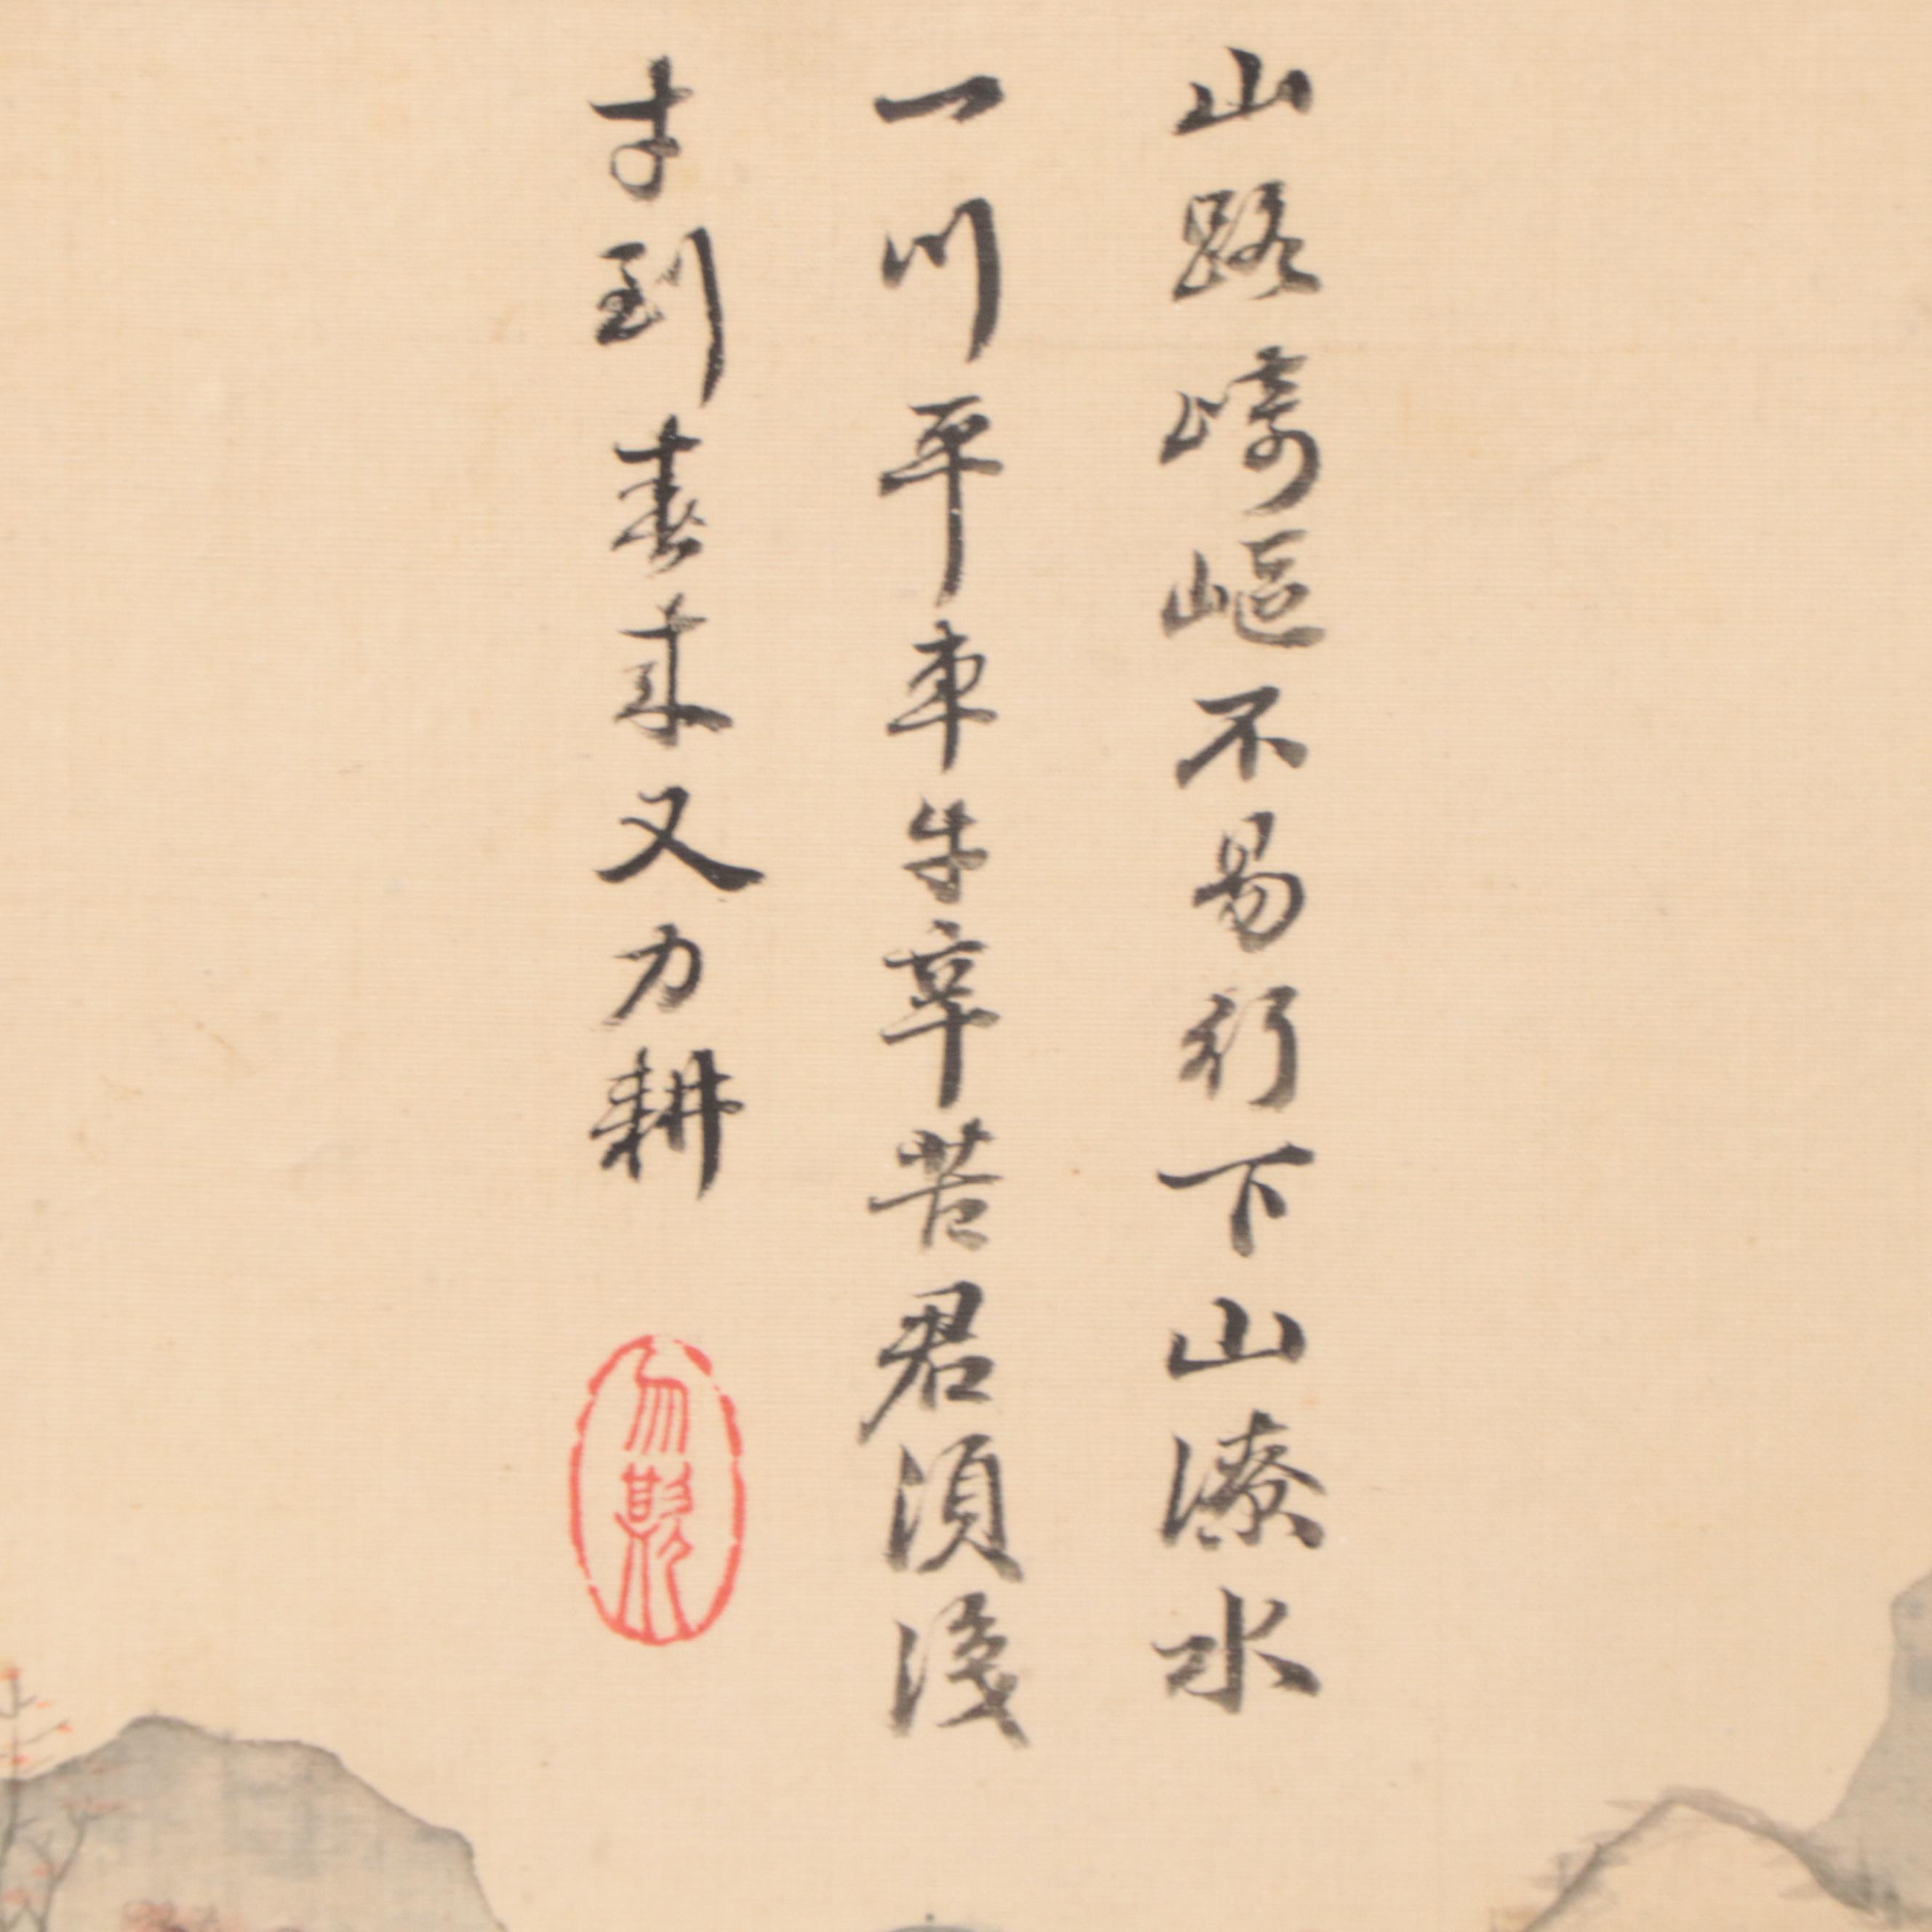 山路崎嶇不易行下山潦水
一川平車牛辛苦君須淺
才到春来又力耕
勿欺